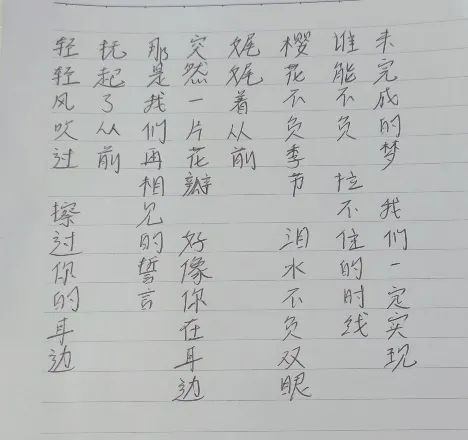 轻轻风吹过 擦过你的耳边
抚起了从前
那是我们再相见的誓言
突然一片花瓣 好像你在耳边
娓娓着从前
樱花不负季节 泪水不负双眼
谁能不负 拉不住的时线
未完成的梦 我们一定实现